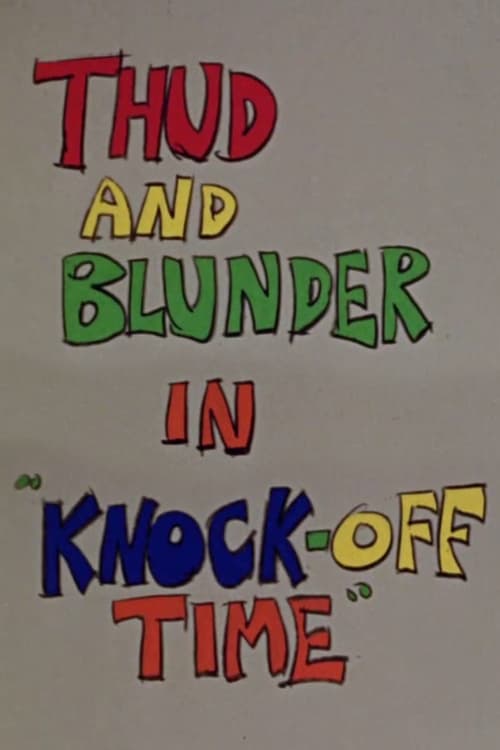 THUD
AND
BLUNDER
IN
"KNOCK-OFF
TIME"